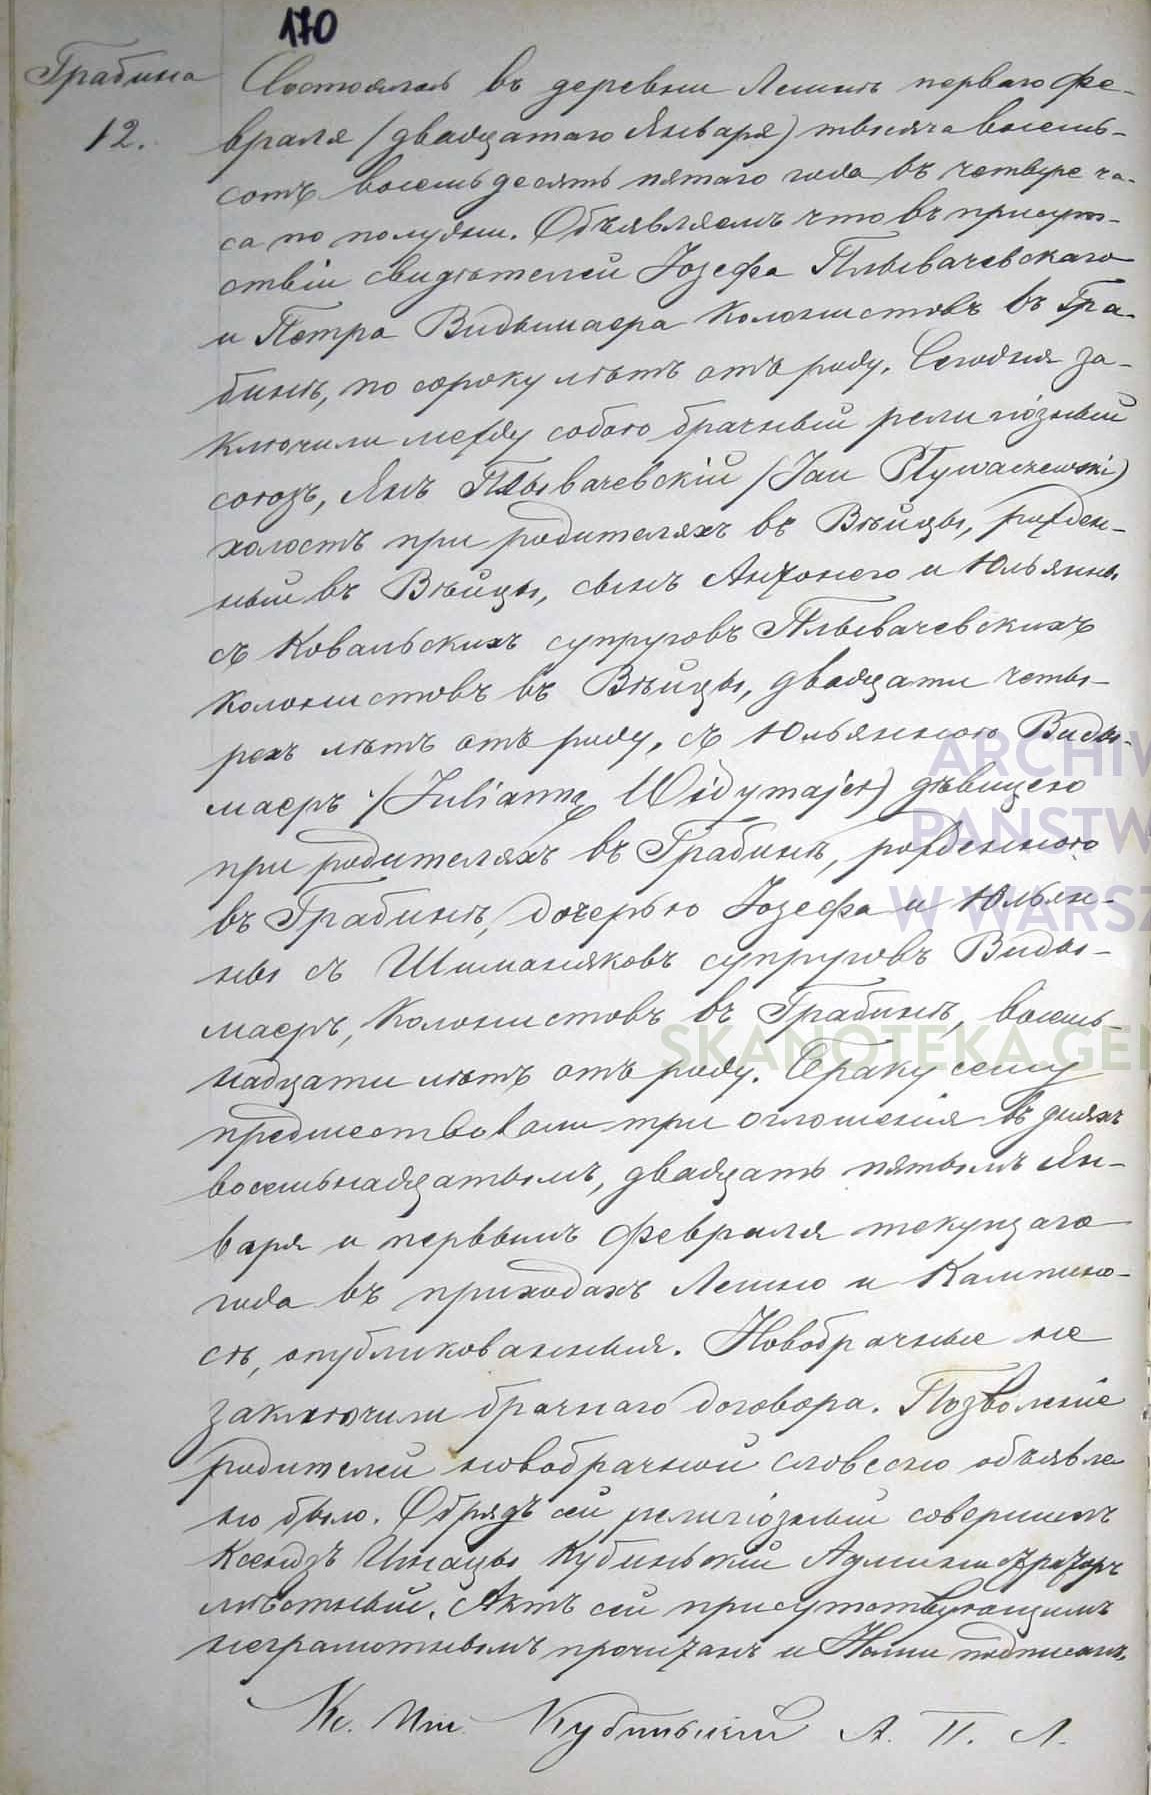 170
Грабина
12.
Состоялось въ деревни Лешнѣ перваго Фе-
враля (двадцатаго Января) тысяча восемь-
сотъ восемьдесятъ пятаго года въ четыре ча-
са по полудни. Объявляемъ что въ присут-
ствіи свидѣтелей Іозефа Плывачевскаго
и Петра Видымаера колонистовъ въ Гра-
бинѣ, по сороку лѣтъ отъ роду. Сегодня за-
ключили между собою брачный религіозный
союзъ, Янъ Плывачевскій (Jan Pływaczewski)
холостъ при родителяхъ въ Вѣйцы, рожден-
ный въ Вѣйцы, сынъ Антонего и Юльянны
съ Ковальскихъ супруговъ Плывачевскихъ
колонистовъ въ Вѣйцы, двадцати четы-
рехъ лѣтъ отъ роду, съ Юльянною Виды-
маеръ (Julianną Widymajer) дѣвицею
при родителяхъ въ Грабинѣ, рожденною
въ Грабинѣ, дочерью Іозефа и Юльян-
ны съ Шиманяковъ супруговъ Виды-
маеръ, колонистовъ въ Грабинѣ, восемь-
надцати лѣтъ отъ роду. Браку сему
предшествовали три оглошенія въ дняхъ
восемьнадцатымъ, двадцать пятымъ Ян-
варя и первымъ Февраля текущаго
года въ приходахъ Лешно и Кампино-
сѣ, опубликованныя. Новобрачные не
заключили брачнаго договора. Позволеніе
родителей новобрачной словесно объявле
но было. Обрядъ сей религіозный совершилъ
Ксендзъ Игнацы Кубиньскій Администраторъ
мѣстный. Актъ сей присутствующимъ
неграмотнымъ прочитанъ и Нами подписанъ.
Кс. Игн. Кубиньскій А. П. Л.
ARCHIW
PAŃSTW
W WARSZ
SKANOTEKA GEN